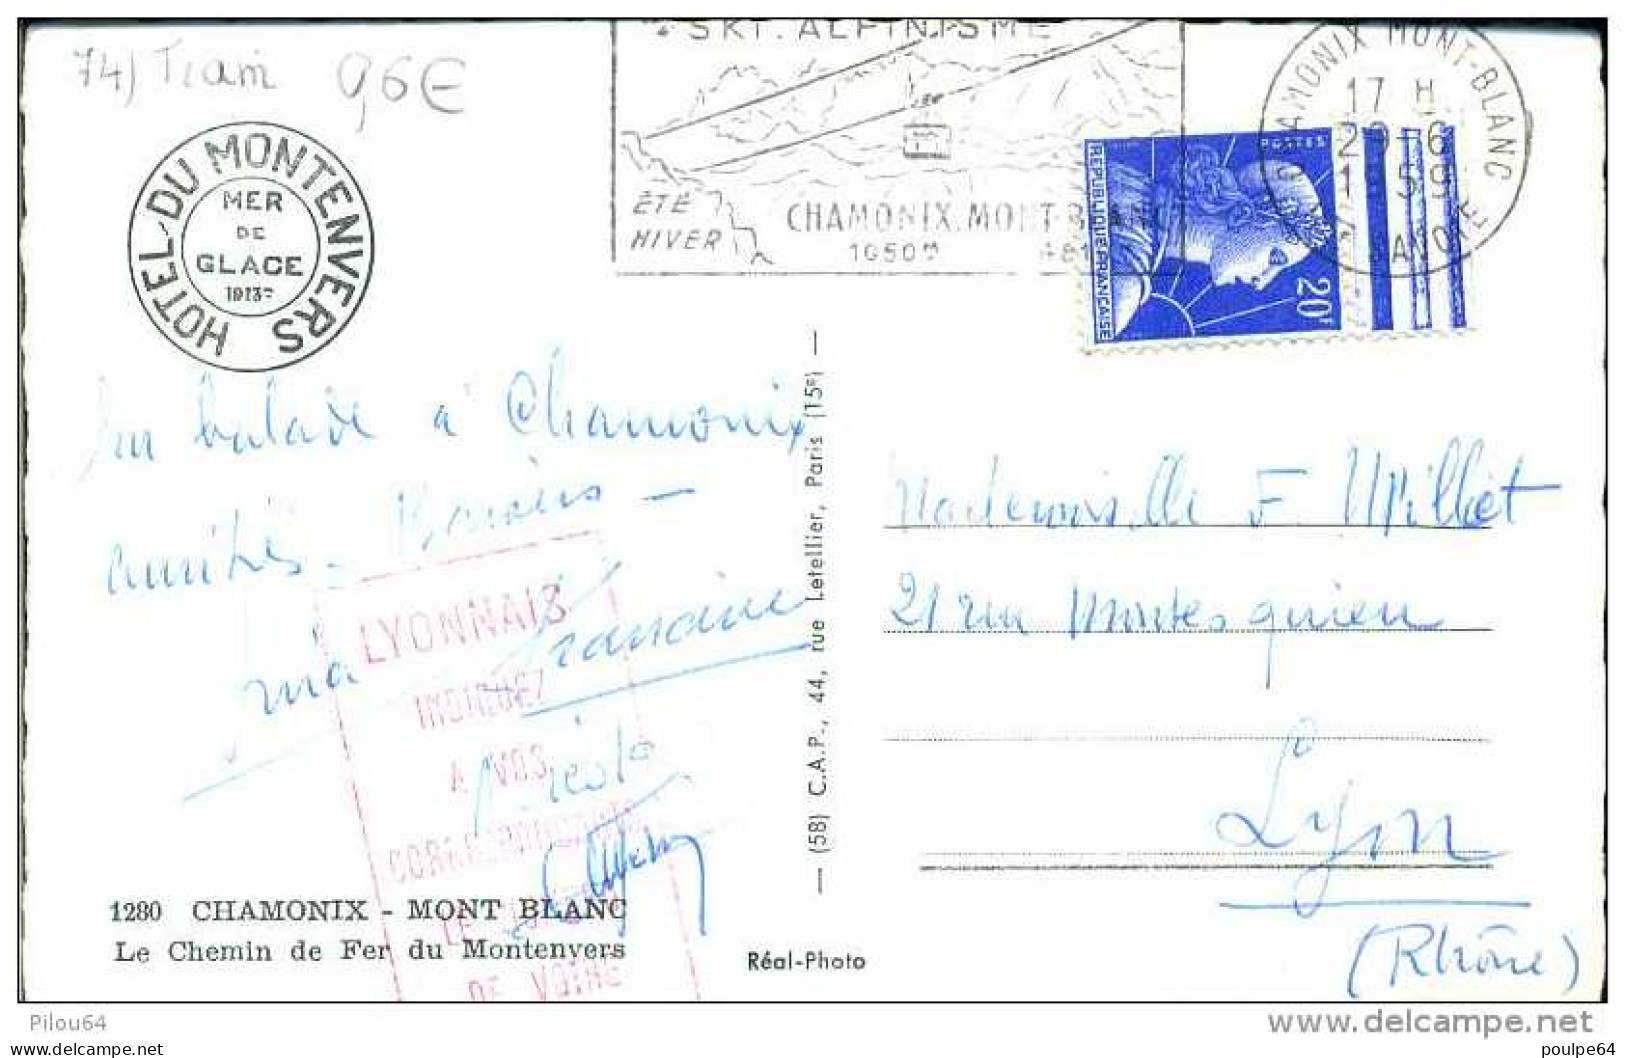 74) Tram 9,6€
SKI. ALPINISME
ÉTÉ
HIVER
CHAMONIX.MONT-BLANC
1050m
CHAMONIX MONT-BLANC
17 H
29-6
1959
SAVOIE
POSTES
REPUBLIQUE FRANÇAISE
20F
HOTEL DU MONTENVERS
MER
DE
GLACE
1913m
En balade à Chamonix
amitiés. Baisers –
ma
LYONNAIS
INDIQUEZ
A VOS
CORRESPONDANTS
LE
DE VOTRE
1280 CHAMONIX - MONT BLANC
Le Chemin de Fer du Montenvers
Réal-Photo
— (58) C.A.P., 44, rue Letellier, Paris (15e) —
Mademoiselle F Milliet
21 rue Montesquieu
Lyon
(Rhône)
Pilou64
www.delcampe.net
www.delcampe.net
poulpe64